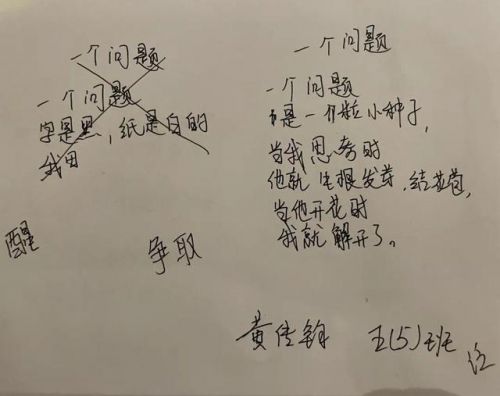 一个问题
一个问题
字是黑，纸是白的
我用
醒
争取
一个问题
一个问题
是一个粒小种子，
当我思考时
他就生根发芽，结花苞，
当他开花时
我就解开了。
黄 五(5)班